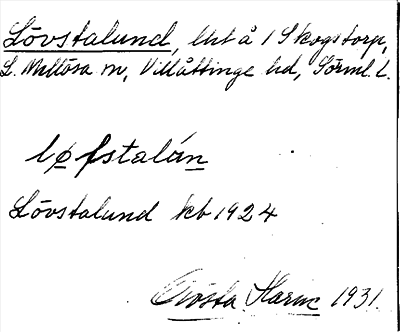 Lövstalund, lht å 1 Skogstorp,
L. Mellösa sn, Villåttinge hd, Sörml. l.
løfstalún
Lövstalund kb 1924
Gösta Harne 1931.